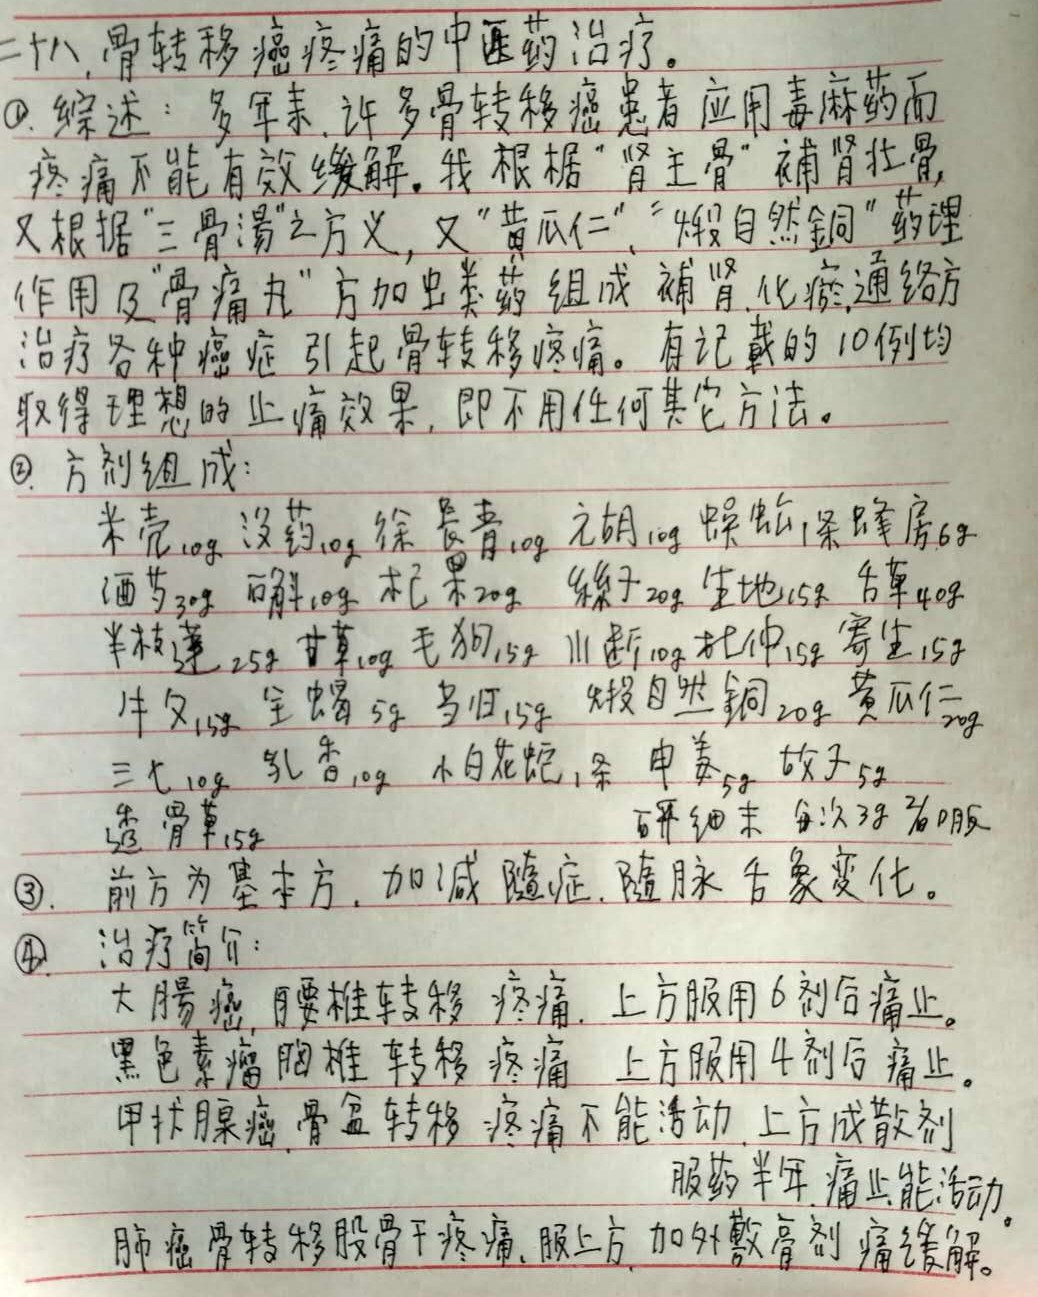 二十八、骨转移癌疼痛的中医药治疗。
①. 综述：多年来、许多骨转移癌患者应用毒麻药而
疼痛不能有效缓解。我根椐“肾主骨”補肾壮骨,
又根据“三骨湯”之方义, 又“黄瓜仁”、“煅自然銅”药理
作用及“骨痛丸”方加虫类药组成補肾、化瘀、通络方
治疗各种癌症引起骨转移疼痛。有记載的10例均
取得理想的止痛效果, 即不用任何其它方法。
②. 方剂组成:
米壳10g 没药10g 徐長青10g 元胡10g 蜈蚣1条 蜂房6g
酒芍30g 石斛10g 杞果20g 絲子20g 生地15g 舌草40g
半枝莲25g 甘草10g 毛狗15g 川断10g 杜仲15g 寄生15g
牛夕15g 全蝎5g 当归15g 煅自然銅20g 黄瓜仁20g
三七10g 乳香10g 小白花蛇1条 申姜5g 故子5g
透骨草15g 研细末 每次3g 2/日口服
③. 前方为基本方、加减随症、随脉舌象变化。
④. 治疗简介:
大腸癌、腰椎转移疼痛、上方服用6剂后痛止。
黑色素瘤胸椎转移疼痛 上方服用4剂后痛止。
甲状腺癌、骨盆转移疼痛不能活动、上方成散剂
服药半年、痛止能活动。
肺癌骨转移股骨干疼痛、服上方、加外敷膏剂痛缓解。